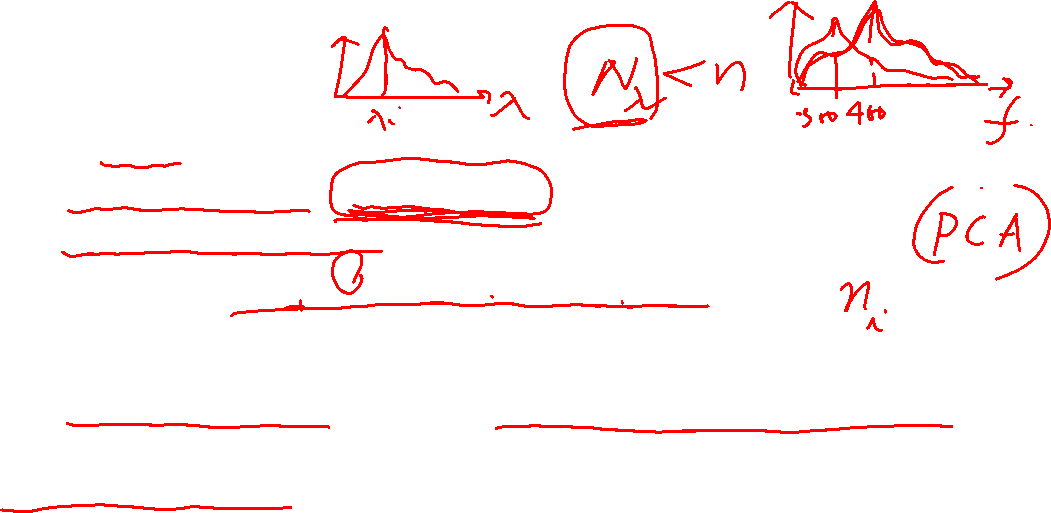 λi λ
Nλ < n
500 400 f
PCA
ni